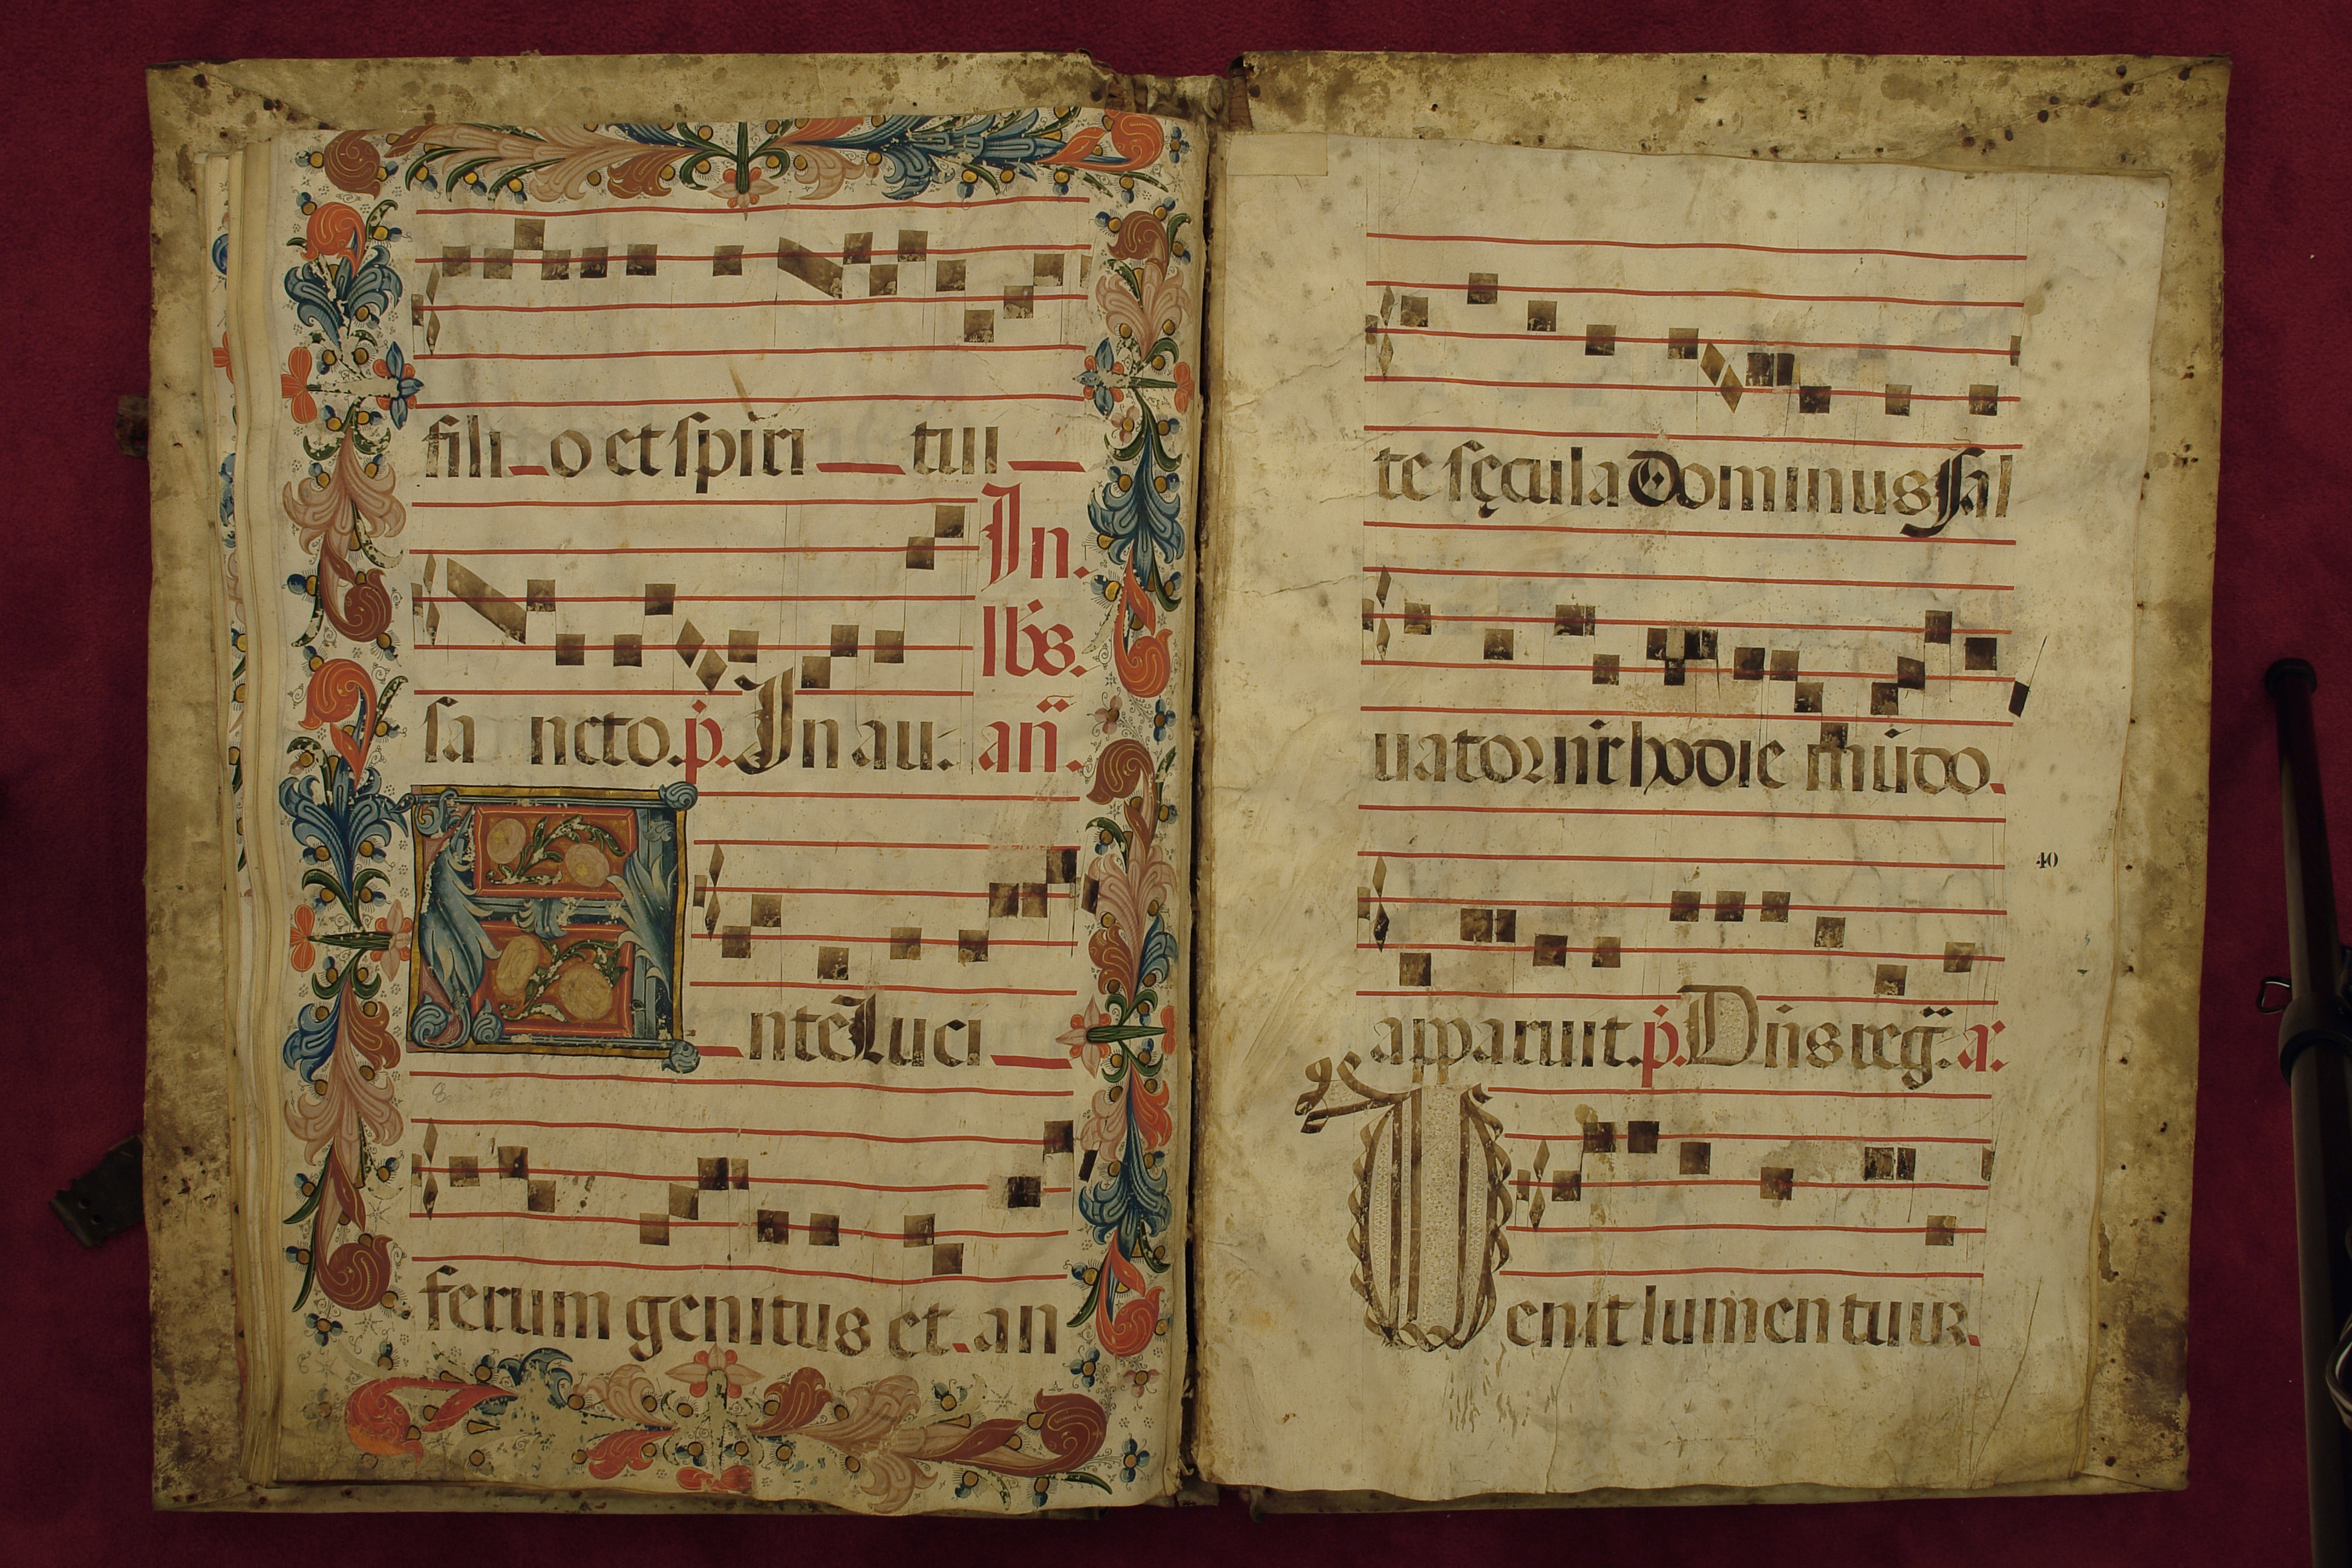 fili o et spiri tui
In.
lb̃s.
sa ncto. p̃. In au. añ.
A nte Luci
ferum genitus et. an
te sęcula Dominus Sal
uator nr̃ hodie mũdo.
40
apparuit. p̃. Dñs reg̃. a:
Venit lumen tuum.